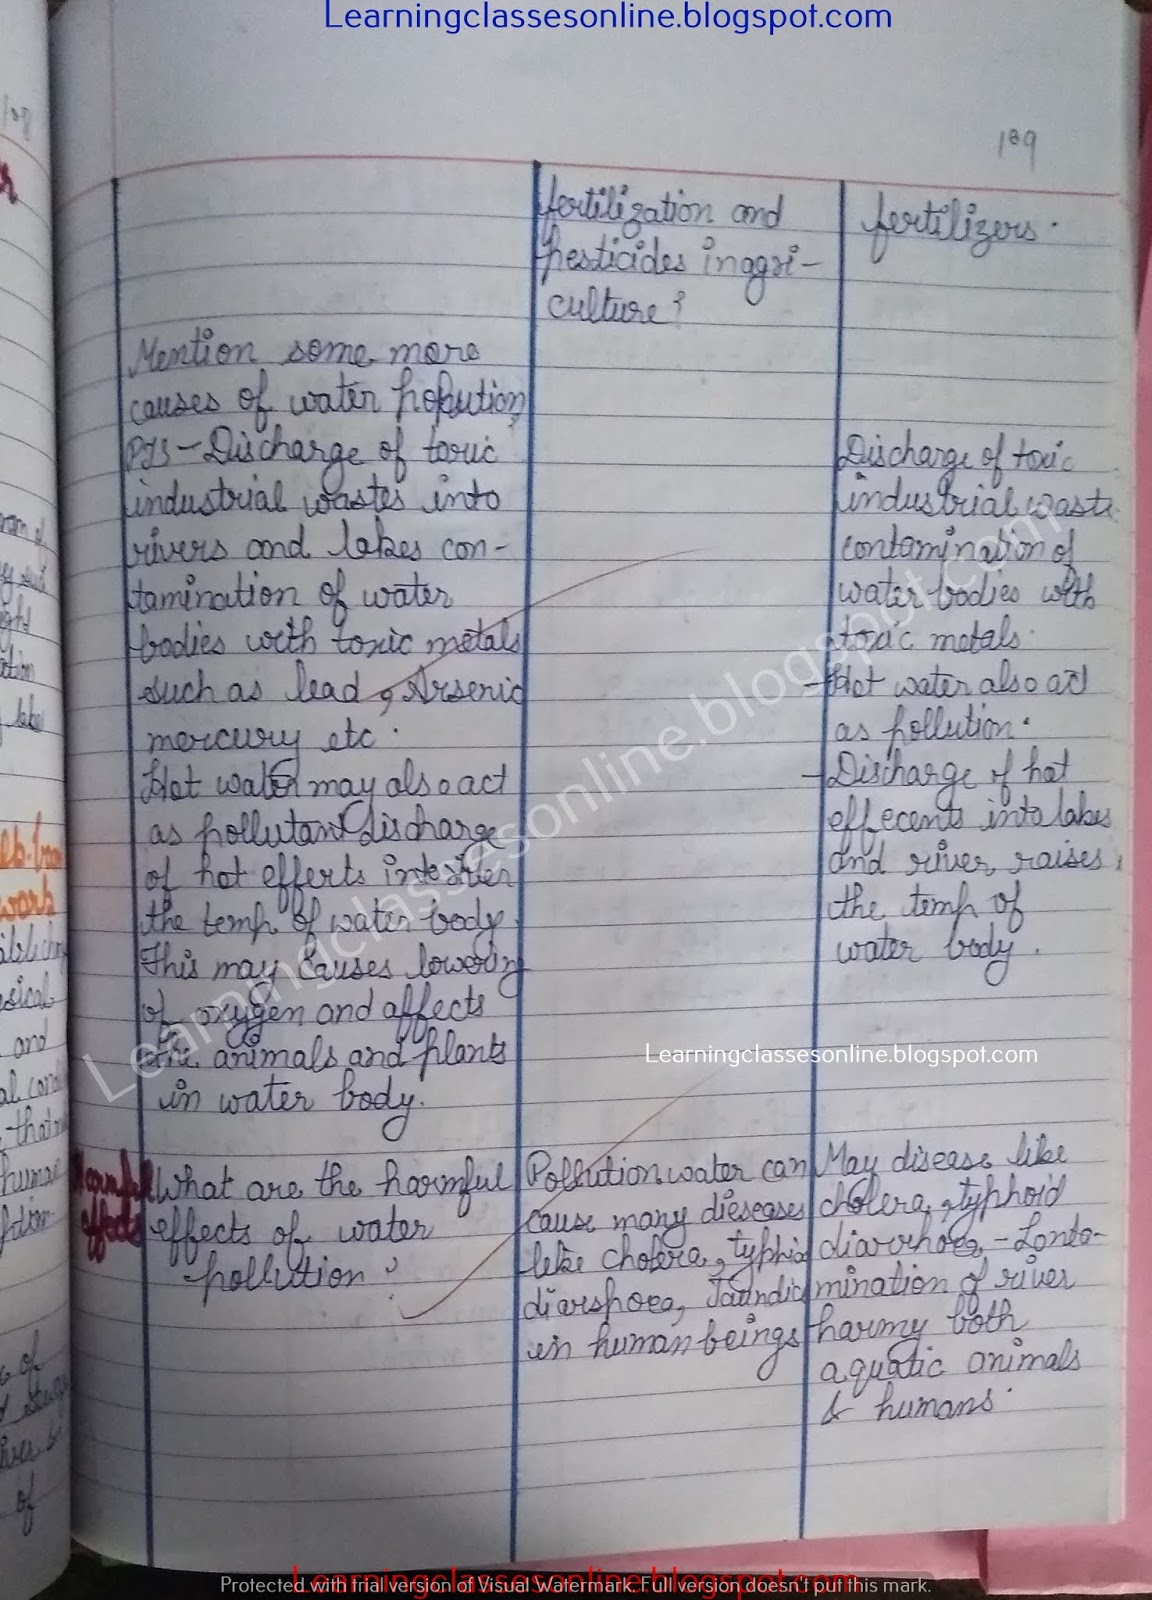 Learningclassesonline.blogspot.com
109
fertilization and
pesticides in agri-
culture?
fertilizers.
Mention some more
causes of water pollution
PTS - Discharge of toxic
industrial wastes into
rivers and lakes con-
tamination of water
bodies with toxic metals
such as lead, Arsenic
mercury etc.
Hot water may also act
as pollutant discharge
of hot efferts into
the temp. of water body.
This may causes lowering
of oxygen and affects
the animals and plants
in water body.
Discharge of toxic
industrial waste
contamination of
water bodies with
toxic metals.
- Hot water also act
as pollution.
- Discharge of hot
effecents into lakes
and river, raises
the temp of
water body.
Learningclassesonline.blogspot.com
Learningclassesonline.blogspot.com
Harmful
effects
What are the harmful
effects of water
pollution?
Pollution water can
cause many dieseases
like cholera, typhid
diarrhoea, Jaundic
in human beings
May disease like
cholera, typhoid
diarrhoea, - Conta-
mination of river
harmy both
aquatic animals
& humans.
Learningclassesonline.blogspot.com
Protected with trial version of Visual Watermark. Full version doesn't put this mark.